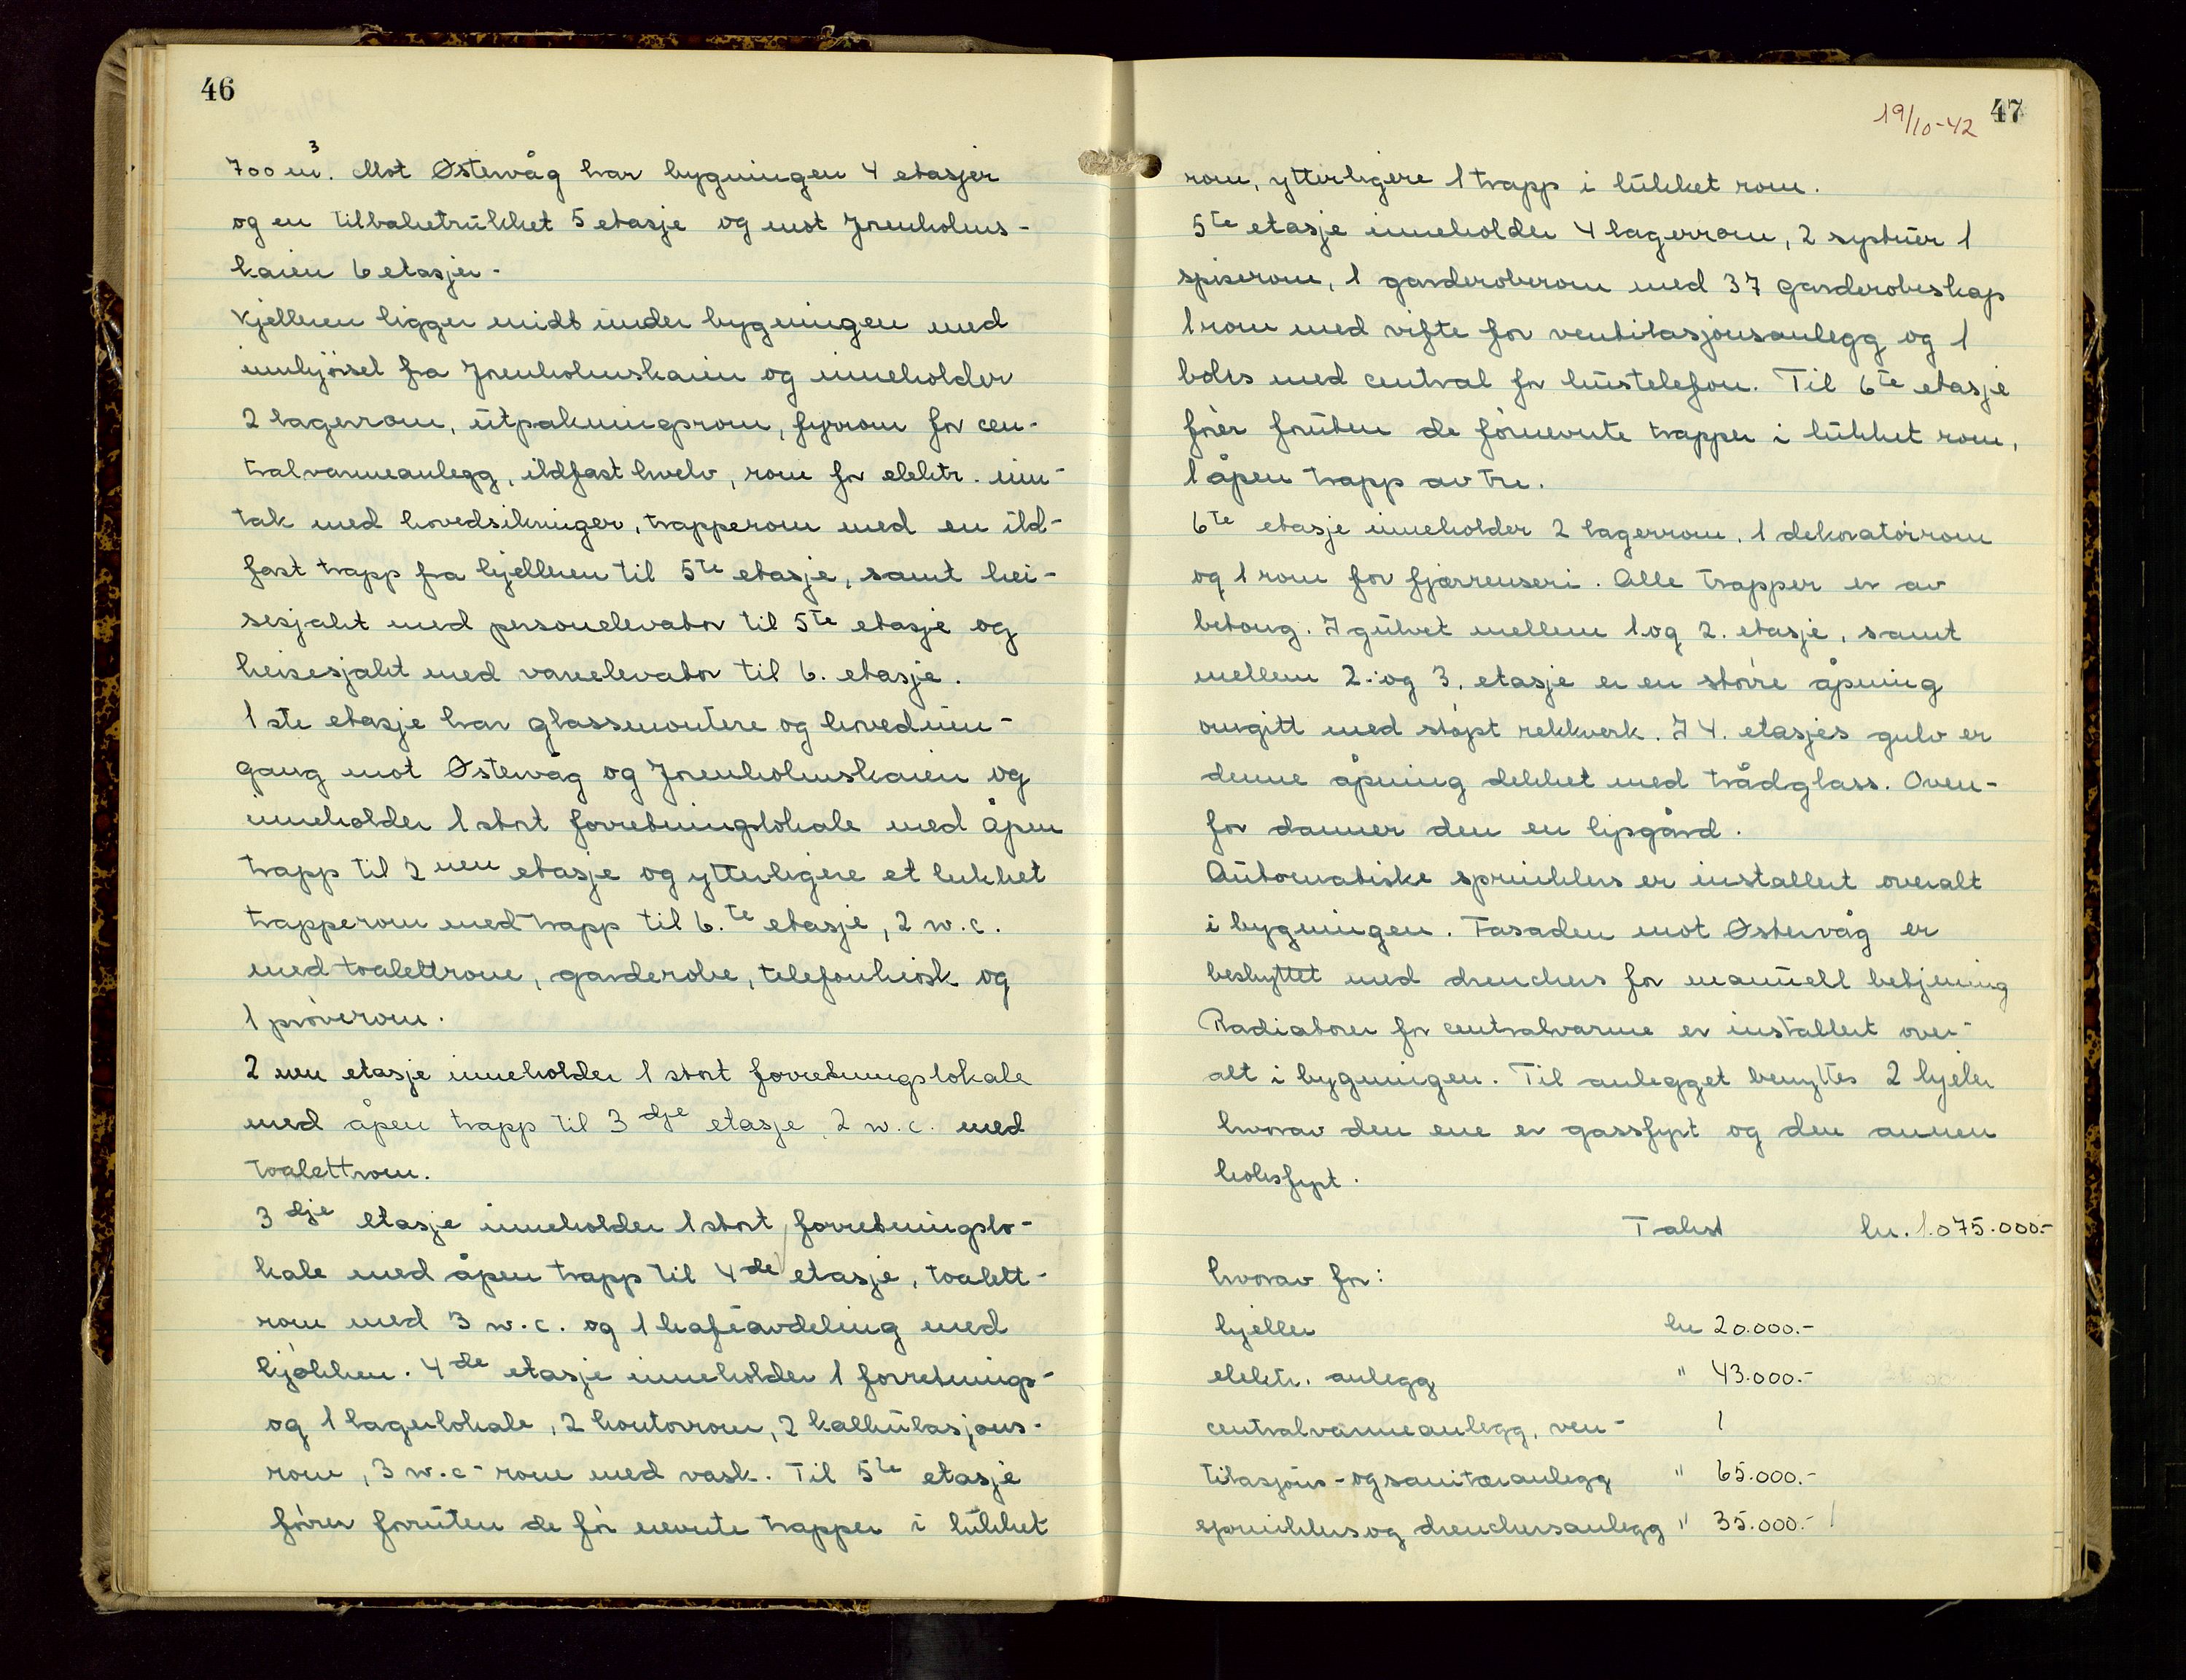 46
700 m³. Mot Østervåg har bygningen 4 etasjer
og en tilbaketrukket 5 etasje og mot Jorenholms-
kaien 6 etasjer-
Kjelleren ligger midt under bygningen med
innkjørsel fra Jorenholmskaien og inneholder
2 lagerrom, utpakningprom, fyrrom for cen-
tralvarmeanlegg, ildfast hvelv, rom for elektr. inn-
tak med hovedsikringer, trapperom med en ild-
fast trapp fra kjelleren til 5te etasje, samt hei-
sesjakt med personelevator til 5te etasje og
heisesjakt med vareelevator til 6. etasje.
1 ste etasje har glassmontere og hovedinn-
gang mot Østervåg og Jorenholmskaien og
inneholder 1 stort forretningslokale med åpen
trapp til 2 nen etasje og ytterligere et lukket
trapperom med trapp til 6.te etasje, 2 w.c.
med toalettrom, garderobe, telefonkiosk og
1 prøverom.
2 nen etasje inneholder 1 stort forretningslokale
med åpen trapp til 3 dje etasje, 2 w.c. med
toalettrom.
3 dje etasje inneholder 1 stort forretningslo-
kale med åpen trapp til 4 de etasje, toalett-
rom med 3 w.c. og 1 kaféavdeling med
kjøkken. 4 de etasje inneholder 1 forretnings-
og 1 lagerlokale, 2 kontorrom, 2 kalkulasjons-
rom, 3 w.c-rom med vask. Til 5te etasje
fører foruten de før nevnte trapper i lukket
19/10-42 47
rom, ytterligere 1 trapp i lukket rom.
5te etasje inneholder 4 lagerrom, 2 systuer 1
spiserom, 1 garderoberom med 37 garderobeskap
1 rom med vifte for ventilasjonsanlegg og 1
boks med central for hustelefon. Til 6te etasje
fører foruten de førnevnte trapper i lukket rom,
1 åpen trapp av tre.
6te etasje inneholder 2 lagerrom, 1 dekoratørrom
og 1 rom for fjærrenseri. Alle trapper er av
betong. I gulvet mellem 1.og 2. etasje, samt
mellem 2. og 3. etasje er en større åpning
omgitt med støpt rekkverk. I 4. etasjes gulv er
denne åpning dekket med trådglass. Oven-
for danner den en lysgård.
Automatiske sprinklers er installert overalt
i bygningen. Fasaden mot Østervåg er
beskyttet med drenchers for manuell betjening
Radiatorer for centralvarme er installert over-
alt i bygningen. Til anlegget benyttes 2 kjeler
hvorav den ene er gassfyrt og den annen
koksfyrt.
Takst kr. 1.075.000.-
hvorav for:
kjeller kr 20.000.-
elektr. anlegg " 43.000.-
centralvarmeanlegg, ven-
tilasjons- og sanitæranlegg " 65.000.-
sprinklers og drenchersanlegg " 35.000.-